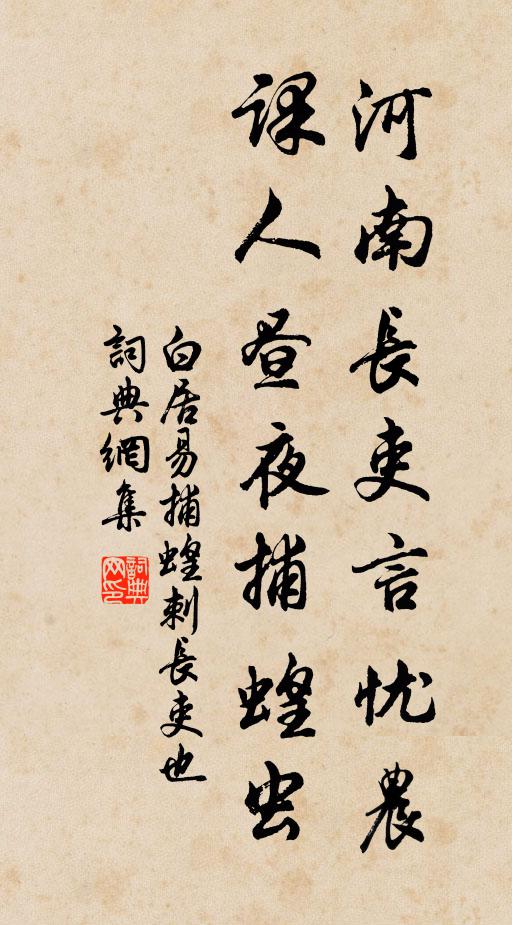 河南長吏言忧農
課人昼夜捕蝗虫
白居易捕蝗刺長吏也
詞典網集
詞典網印